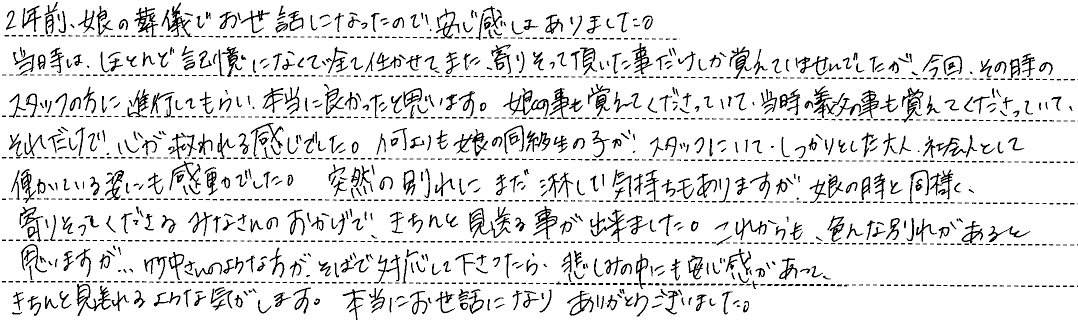 2年前、娘の葬儀でおせ話になったので、安心感はありました。
当時は、ほとんど記憶になくて、全て任かせて、また、寄りそって頂いた事だけしか覚えていませんでしたが、今回、その時の
スタッフの方に進行してもらい、本当に良かったと思います。娘の事も覚えてくださっていて、当時の義父の事も覚えてくださっていて、
それだけで、心が救われる感じでした。何よりも娘の同級生の子が、スタッフにいて、しっかりとした大人、社会人として
働かいている姿にも感動でした。突然の別れにまだ淋しい気持ちもありますが、娘の時と同様く、
寄りそってくださるみなさんのおかげで、きちんと見送る事が出来ました。これからも、色んな別れがあると
思いますが、、竹中さんのような方が、そばで対応して下さったら、悲しみの中にも安心感があって、
きちんと見送れるような気がします。本当にお世話になりありがとうございました。